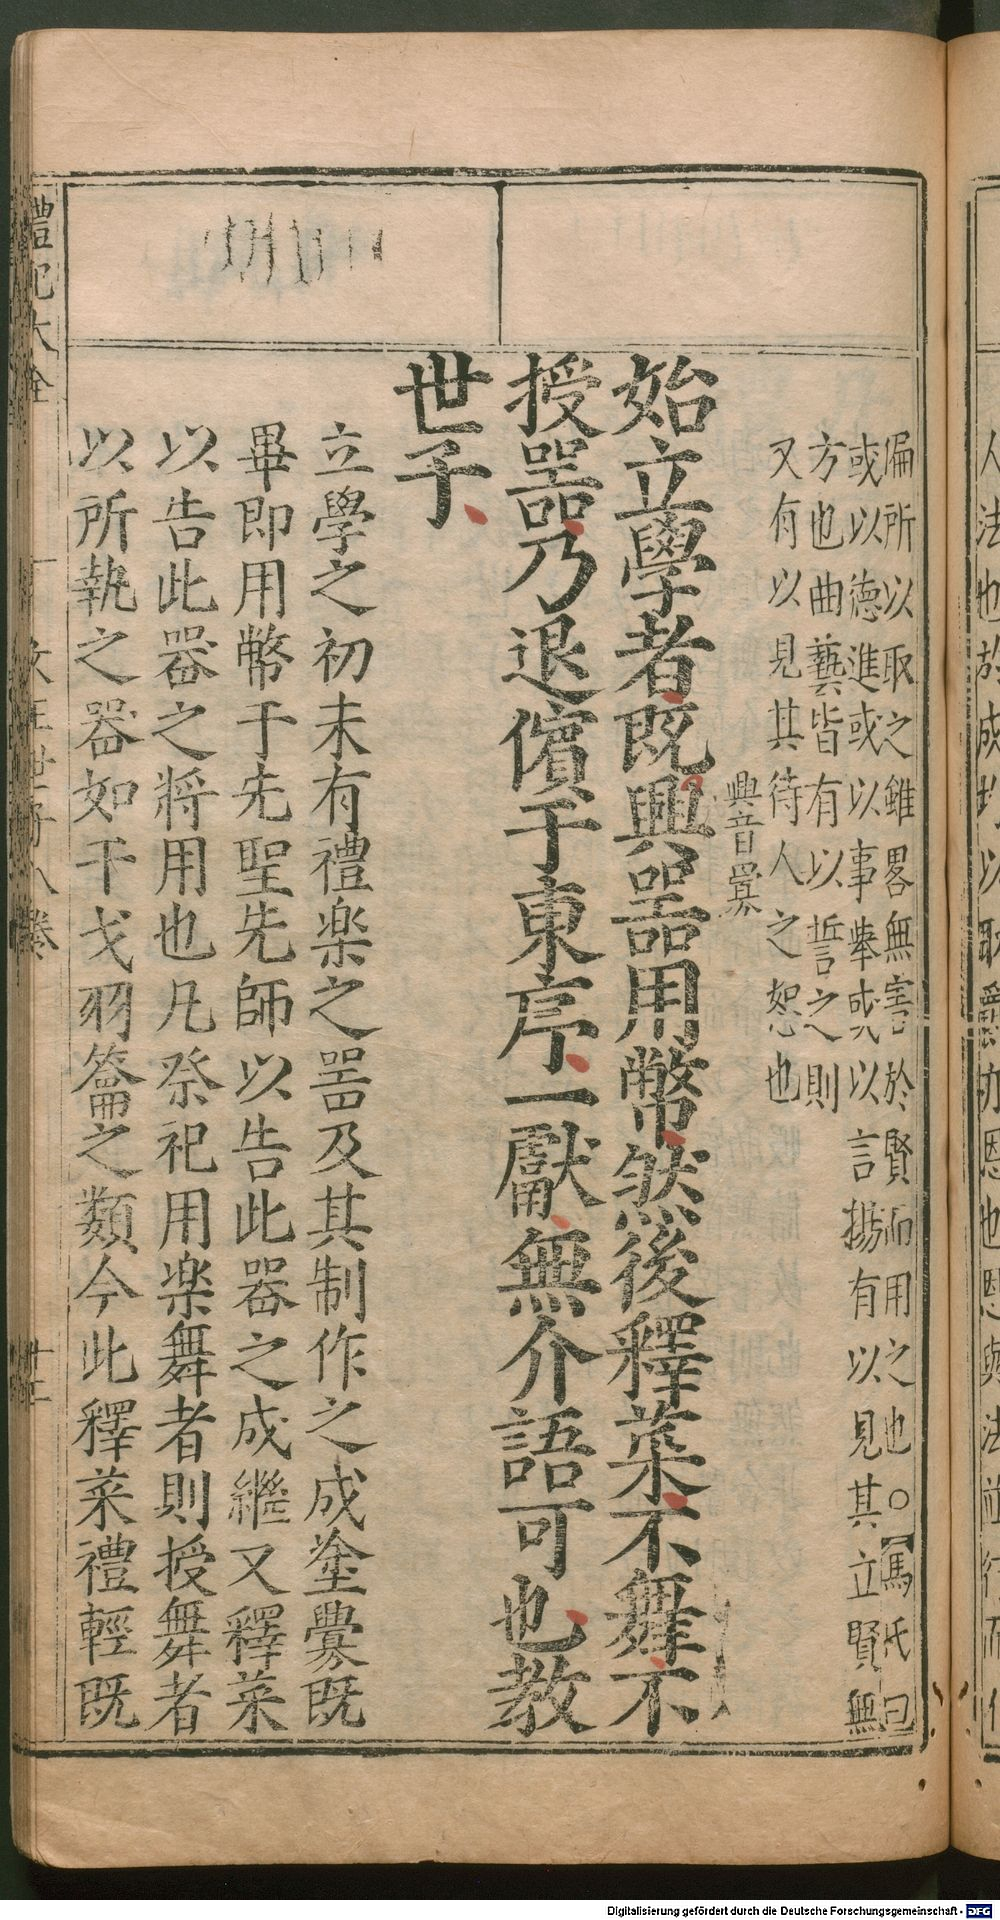 偏所以取之雖畧無害於賢而用之也○【馬氏曰
或以德進或以事舉或以言揚有以見其立賢無
方也曲藝皆有以誓之則
又有以見其待人之恕也
興音釁
始立學者既興噐用幣然後釋菜不舞不
授噐乃退儐于東序一獻無介語可也教
世子
立學之初未有禮楽之噐及其制作之成塗釁既
畢即用幣于先聖先師以告此器之成繼又釋菜
以告此器之將用也凡祭祀用楽舞者則授舞者
以所執之器如干戈羽籥之類今此釋菜禮輕既
禮記大全
文王世子八卷
Digitalisierung gefördert durch die Deutsche Forschungsgemeinschaft - DFG